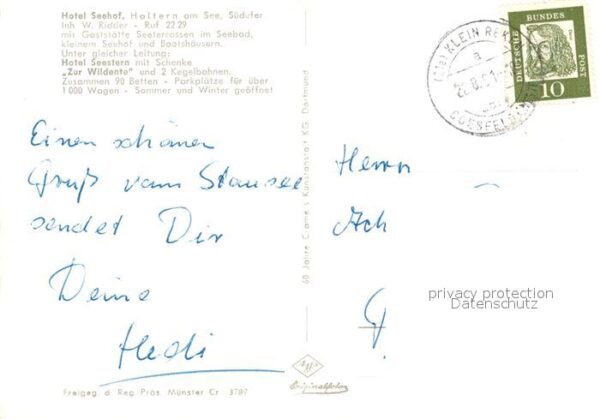 Hotel Seehof, Haltern am See, Südufer
Inh W. Ridder - Ruf 22 29
mit Gaststätte Seeterrassen im Seebad,
kleinem Seehof und Bootshäusern.
Unter gleicher Leitung:
Hotel Seestern mit Schenke
„Zur Wildente" und 2 Kegelbahnen.
Zusammen 90 Betten - Parkplätze für über
1000 Wagen - Sommer und Winter geöffnet
KLEIN RE
COESFELD
DEUTSCHE BUNDES POST
10
Einen schönen
Gruß vom Stausee
sendet Dir
Deine
Hedi
Herrn
Ach
60 Jahre Cramers Kunstanstalt KG. Dortmund
privacy protection
Datenschutz
Agfa
Originalfoto
Freigeg d. Reg. Präs. Münster Cr 3789